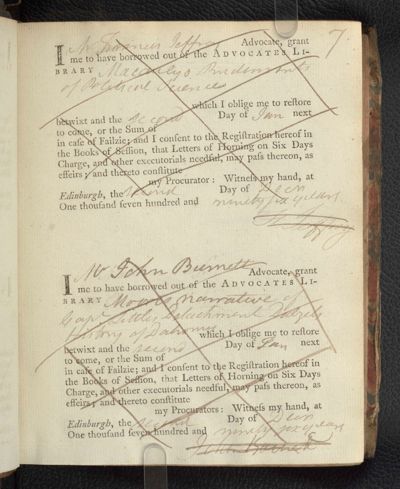 7.
I Mr Francis Jeffrey Advocate, grant
me to have borrowed out of the ADVOCATES LI-
BRARY Macaulay's Rudiments
of Political Science
which I oblige me to reſtore
betwixt and the second Day of Jan next
to come, or the Sum of
in caſe of Failzie; and I conſent to the Regiſtration hereof in
the Books of Seſſion, that Letters of Horning on Six Days
Charge, and other executorials needful, may paſs thereon, as
effeirs; and thereto conſtitute
my Procurator: Witneſs my hand, at
Edinburgh, the second Day of Decr
One thouſand ſeven hundred and ninety six years
F. Jeffrey
I Mr John Burnett Advocate, grant
me to have borrowed out of the ADVOCATES LI-
BRARY Moors narrative of
Capt Littles detachment Dalzels
History of Dahomey which I oblige me to reſtore
betwixt and the second Day of Jan next
to come, or the Sum of
in caſe of Failzie; and I conſent to the Regiſtration hereof in
the Books of Seſſion, that Letters of Horning on Six Days
Charge, and other executorials needful, may paſs thereon, as
effeirs; and thereto conſtitute
my Procurators: Witneſs my hand, at
Edinburgh, the second Day of Decr
One thouſand ſeven hundred and ninety six years
John Burnett